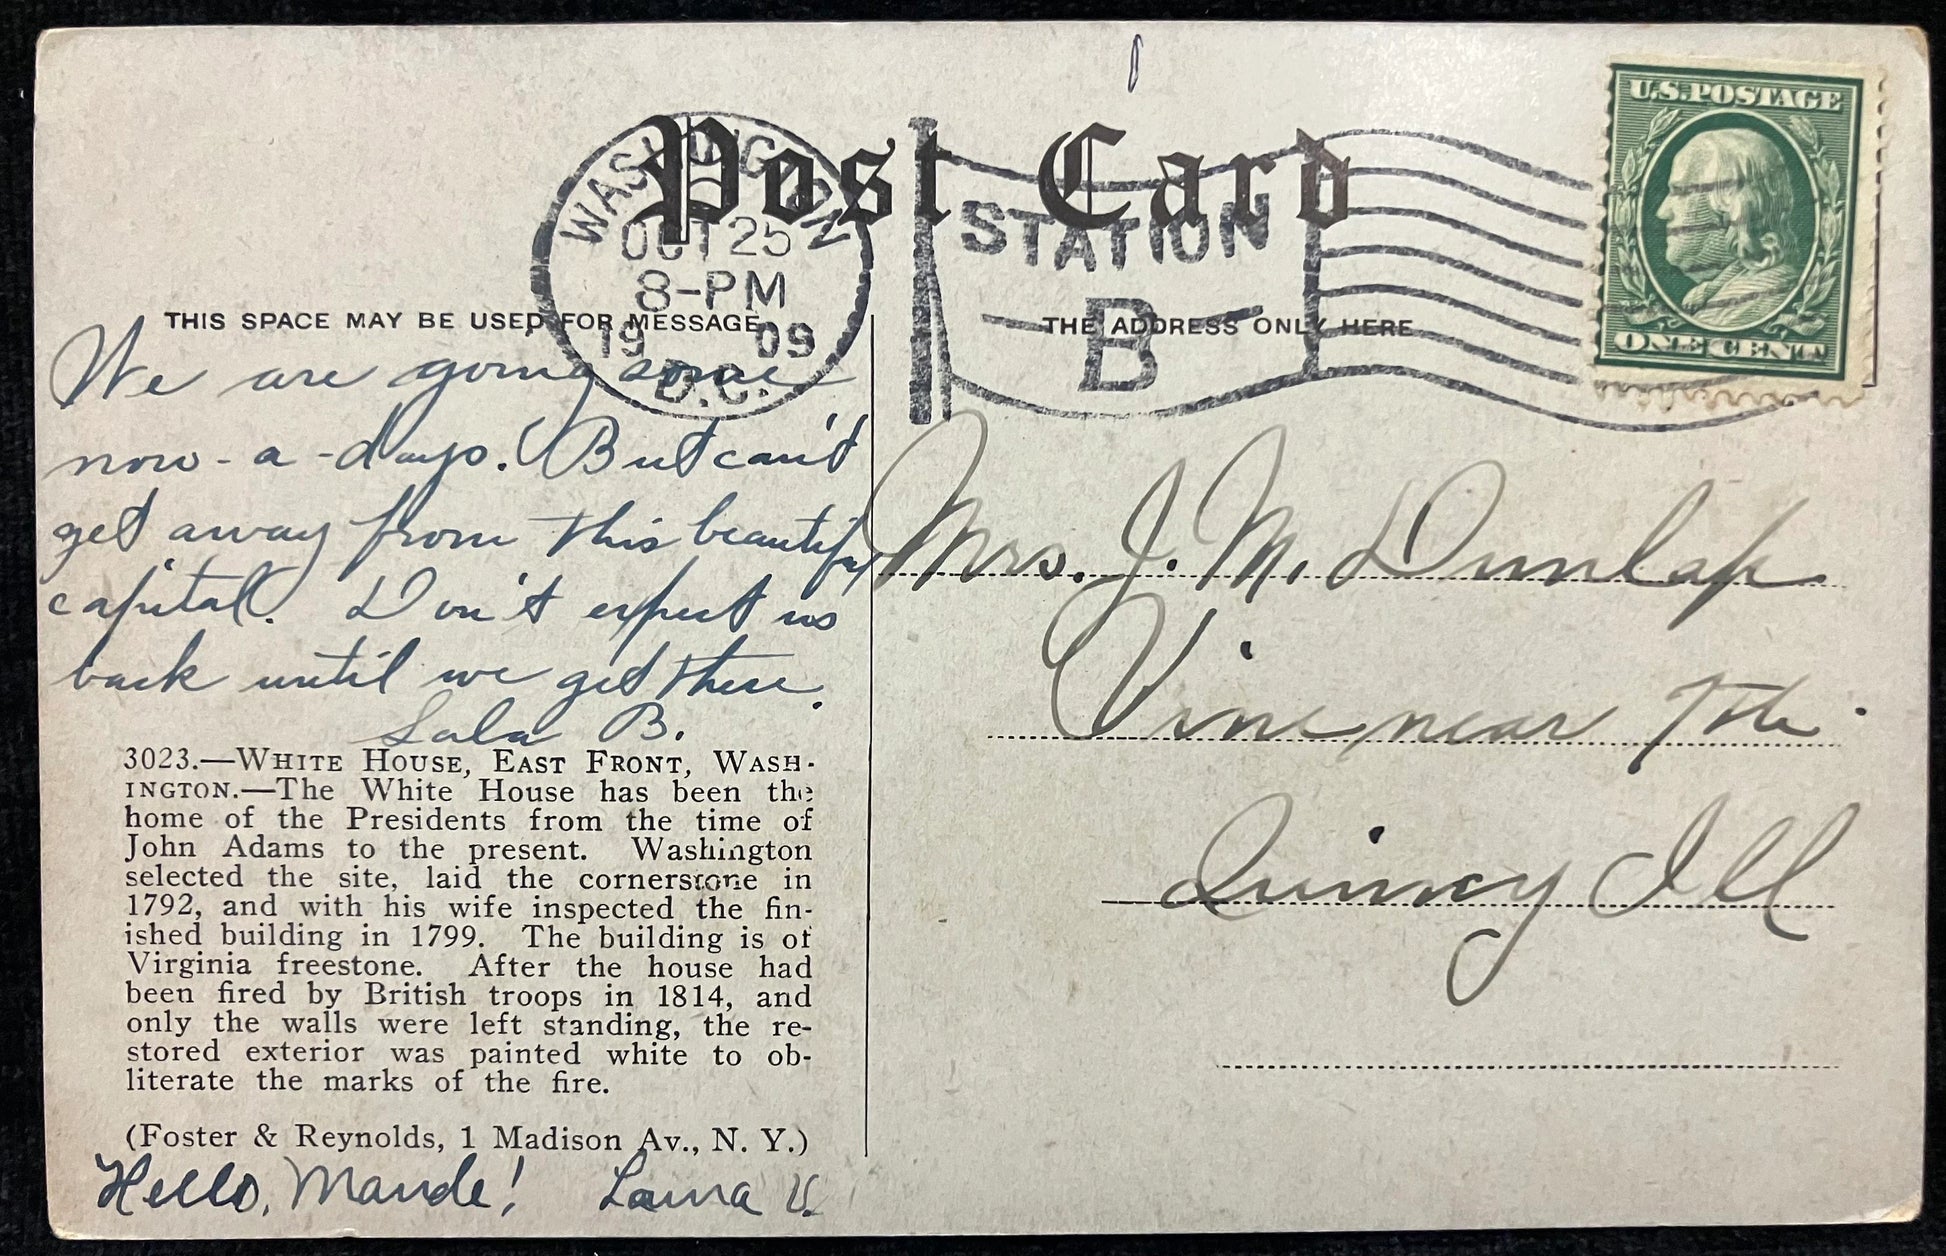 Post Card
WASHINGTON
OCT 25
8-PM
1909
D.C.
STATION
B
U.S. POSTAGE
ONE CENT
THIS SPACE MAY BE USED FOR MESSAGE
THE ADDRESS ONLY HERE
We are going some
now-a-days. But can't
get away from this beautiful
capital. Don't expect us
back until we get there.
Lala B.
Mrs. J. M. Dunlap.
Vine near 7th.
Quincy Ill
3023.—WHITE HOUSE, EAST FRONT, WASH-
INGTON.—The White House has been the
home of the Presidents from the time of
John Adams to the present. Washington
selected the site, laid the cornerstone in
1792, and with his wife inspected the fin-
ished building in 1799. The building is of
Virginia freestone. After the house had
been fired by British troops in 1814, and
only the walls were left standing, the re-
stored exterior was painted white to ob-
literate the marks of the fire.
(Foster & Reynolds, 1 Madison Av., N. Y.)
Hello, Maude! Laura V.